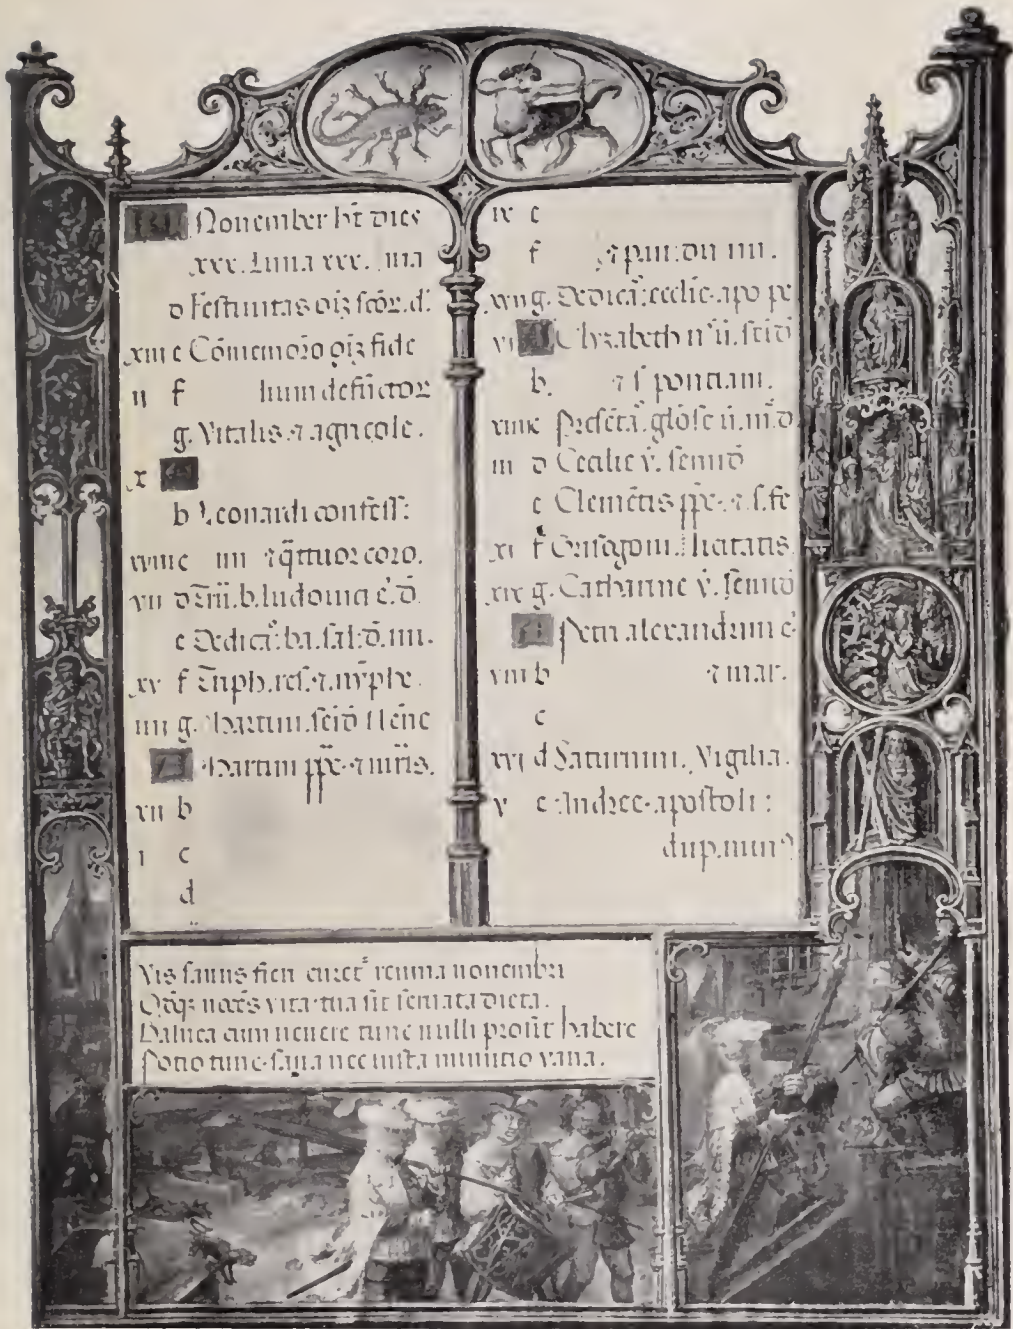 KL November ht dies
xxx. Luna xxx. ma
d Festivitas oīz scōr. d.
xiii e Cōmemoro oīz fide
ii f lium defūctor
g. Vitalis ⁊ agricole.
x A
b Leonardi confess:
xviii c iiii ⁊ q̄ttuor coro.
vii d b. ludouici
e Dedicā. ba. sal. d. m.
xv f Triph. res. ⁊ nȳphe.
iiii g. Martini.
A Martini pp̄e ⁊ mr̄is.
xii b
i c
d
ix e
f
xvii g. Dedicā: ecclie. apo pe
vi A Elyzabeth
b. ⁊ s. pontiani.
xiiii c Presētā. glōse v. m. d
iii d Cecilie v. semid
e Clemētis pp̄e. ⁊ s. fe
xi f Grisogoni. licitatis.
xix g. Catharine v. semid
A Petri alexandrini e
viii b ⁊ mar.
c
xvi d Saturnini. Vigilia.
v e Andree. apostoli:
dup. min
Vis sanus fieri curet reuma nouembri
vita tua sit seruata dieta.
Balnea cum uenere tunc nulli prosit habere
Potio tunc sana nec iusta minutio vana.